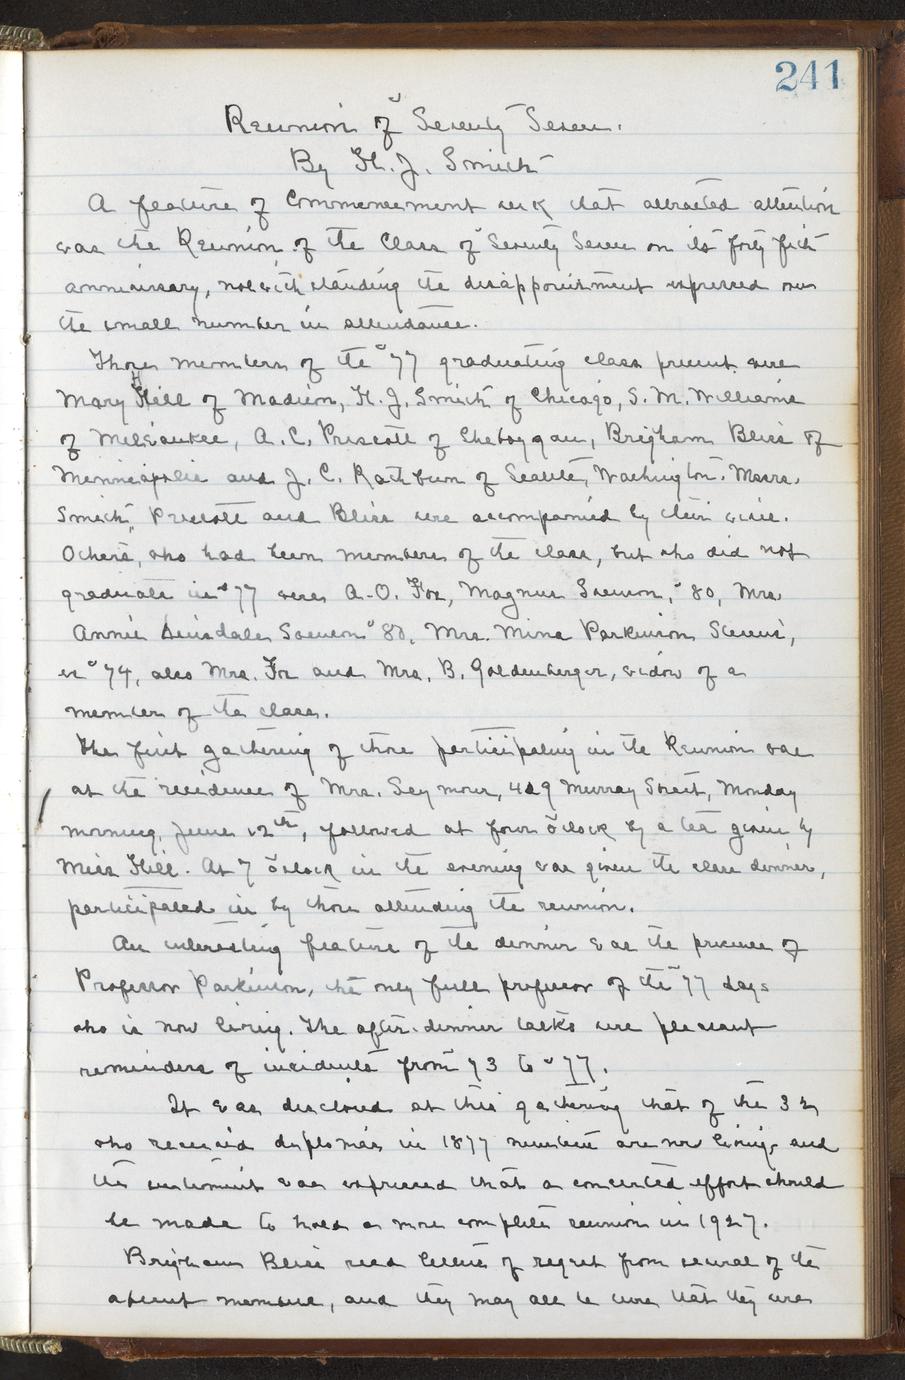 241
Reunion of Seventy Seven.
By H. J. Smith
A feature of Commencement week that attracted attention
was the Reunion of the Class of Seventy Seven on its forty fifth
anniversary, notwithstanding the disappointment expressed over
the small number in attendance.
Those members of the '77 graduating class present were
Mary Hill of Madison, H. J. Smith of Chicago, S. M. Williams
of Milwaukee, A. C. Prescott of Sheboygan, Brigham Bliss of
Minneapolis and J. C. Rathbun of Seattle, Washington. Messrs.
Smith, Prescott and Bliss were accompanied by their wives.
Others, who had been members of the class, but who did not
graduate in '77 were A. O. Fox, Magnus Swenson, '80, Mrs
Annie Dinsdale Swenson '80, Mrs. Mina Parkinson
'74, also Mrs. Fox and Mrs. B. Goldenberger, widow of a
member of the class.
The first gathering of those participating in the Reunion was
at the residence of Mrs. Seymour, 429 Murray Street, Monday
morning, June 12th, followed at four o'clock by a tea given by
Miss Hill. At 7 o'clock in the evening was given the class dinner,
participated in by those attending the reunion.
An interesting feature of the dinner was the presence of
Professor Parkinson, the only full professor of the '77 days
who is now living. The after-dinner talks were pleasant
reminders of incidents from '73 to '77.
It was disclosed at this gathering that of the
who received diplomas in 1877 nineteen are now living, and
the sentiment was expressed that a concerted effort should
be made to hold a more complete reunion in 1927.
Brigham Bliss read letters of regret from several of the
absent members, and they may all be sure that they were